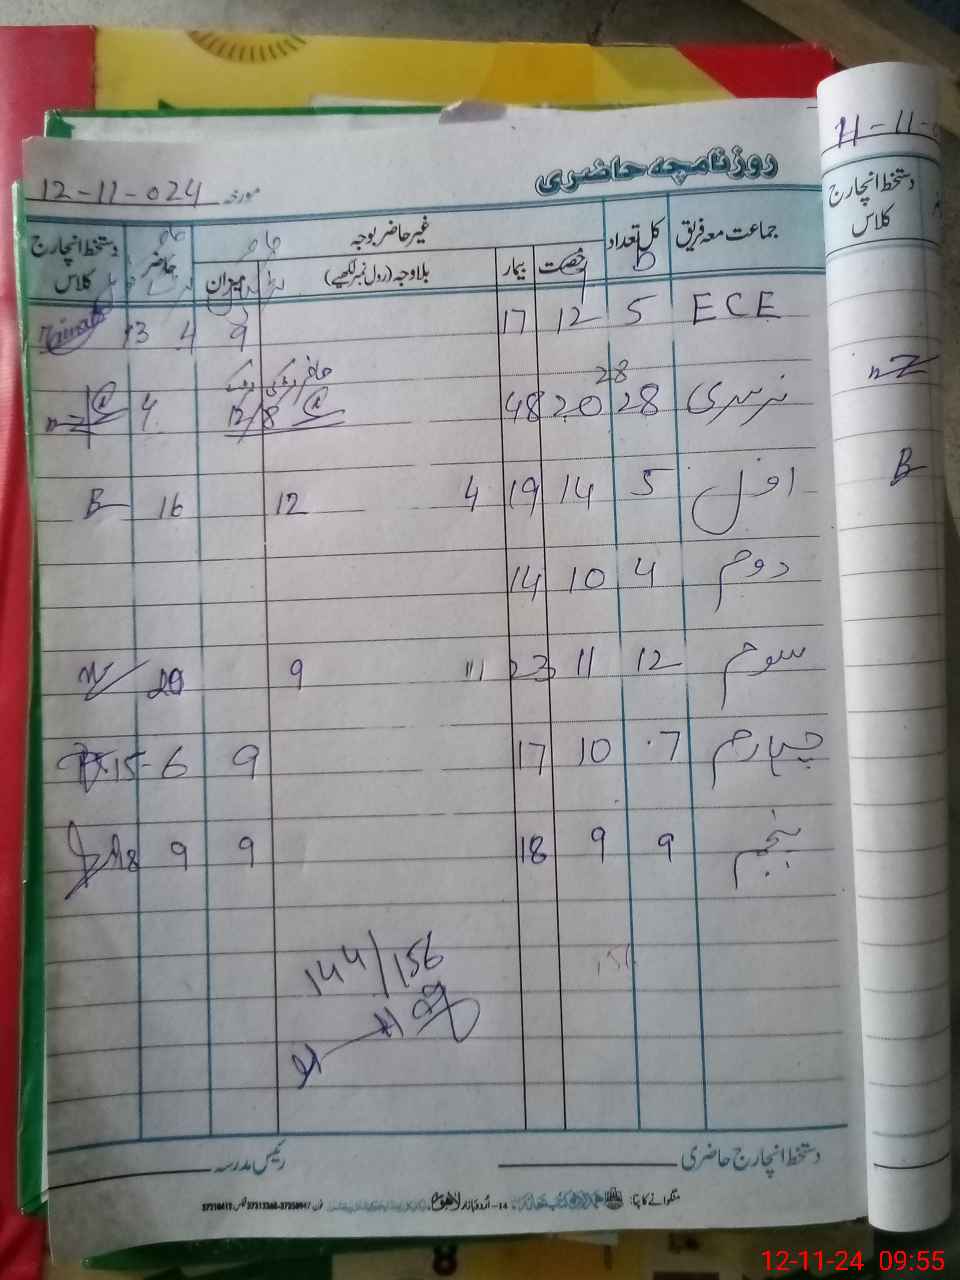 روزنامچہ حاضری
مورخہ 12-11-024
جماعت معہ فریق کل تعداد غیر حاضر بوجہ حاضر دستخط انچارج کلاس
رخصت بیمار بلاوجہ (رول نمبر لکھیے) میزان
ECE 5 12 17 9 4 13
28
نرسری 28 20 48 12/8 4
اول 5 14 19 4 12 16 B
دوم 4 10 14
سوم 12 11 23 11 9 20
چہارم 7 10 17 9 6 15
پنجم 9 9 18 9 9 18
144/156
156
دستخط انچارج حاضری رئیس مدرسہ
منگوانے کا پتا: 14-اُردو بازار لاہور
11-11-
دستخط انچارج
کلاس
B
12-11-24 09:55